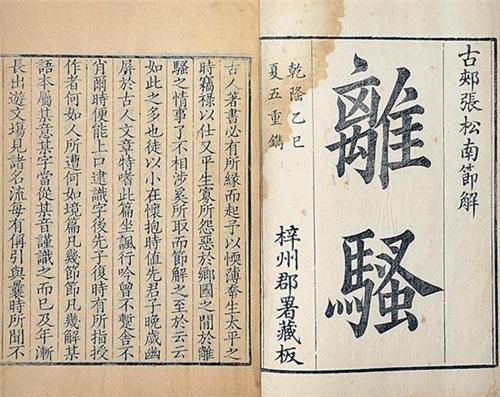 古郟張松南節解
離騷
乾隆乙巳
夏五重鐫
梓州郡署藏板
古人著書必有所緣而起予以慵薄幸生太平之
時竊祿以仕又平生寡所怨惡於鄉國之間於離
騷之情事了不相涉奚所取而節解之至於云云
如此之多也徒以小在懷抱時值先君子晚歲幽
屏於古人文章特嗜此篇坐諷行吟曾不蹔舍不
肖爾時便能上口逮識字後先子復時有所指授
作者何如人所遭何如境篇凡幾節節凡幾解某
語本屬某意某字當從某音謹識之而已及年漸
長出遊文場見諸名流每有稱引與曩時所聞不